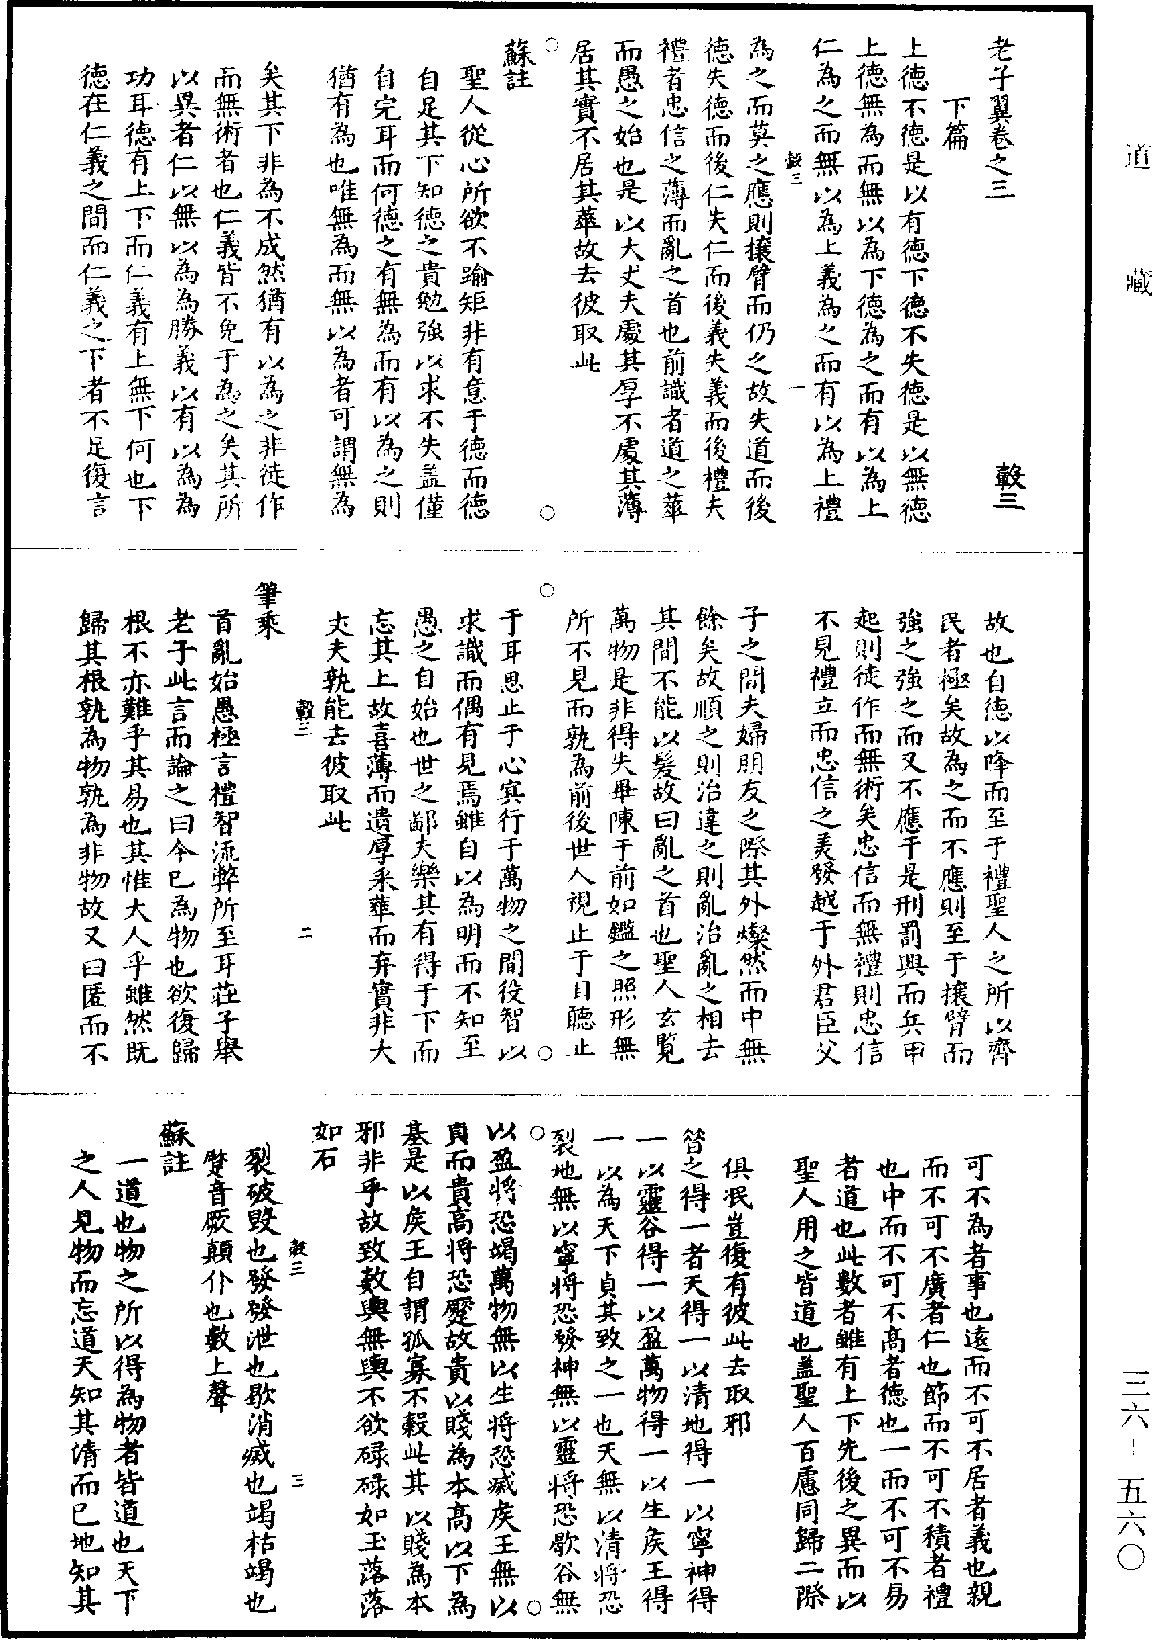 道藏
三六-五六〇
老子翼卷之三 
下篇
上德不德是以有德下德不失德是以無德
上德無為而無以為下德為之而有以為上
仁為之而無以為上義為之而有以為上禮
為之而莫之應則攘臂而仍之故失道而後
德失德而後仁失仁而後義失義而後禮夫
禮者忠信之薄而亂之首也前識者道之華
而愚之始也是以大丈夫處其厚不處其薄
居其實不居其華故去彼取此
蘇註
聖人從心所欲不踰矩非有意于德而德
自足其下知德之貴勉強以求不失盖僅
自完耳而何德之有無為而有以為之則
猶有為也唯無為而無以為者可謂無為
矣其下非為不成然猶有以為之非徒作
而無術者也仁義皆不免于為之矣其所
以異者仁以無以為為勝義以有以為為
功耳德有上下而仁義有上無下何也下
德在仁義之間而仁義之下者不足復言
故也自德以降而至于禮聖人之所以齊
民者極矣故為之而不應則至于攘臂而
強之強之而又不應于是刑罰興而兵甲
起則徒作而無術矣忠信而無禮則忠信
不見禮立而忠信之美發越于外君臣父
子之間夫婦朋友之際其外燦然而中無
餘矣故順之則治違之則亂治亂之相去
其間不能以髮故曰亂之首也聖人玄覧
萬物是非得失畢陳于前如鑑之照形無
所不見而孰為前後世人視止于目聽止
于耳思止于心冥行于萬物之間役智以
求識而偶有見焉雖自以為明而不知至
愚之自始也世之鄙夫樂其有得于下而
忘其上故喜薄而遺厚采華而弃實非大
丈夫孰能去彼取此
筆乘
首亂始愚極言禮智流弊所至耳莊子舉
老子此言而論之曰今已為物也欲復歸
根不亦難乎其易也其惟大人乎雖然既
歸其根孰為物孰為非物故又曰匿而不
可不為者事也遠而不可不居者義也親
而不可不廣者仁也節而不可不積者禮
也中而不可不高者德也一而不可不易
者道也此數者雖有上下先後之異而以
聖人用之皆道也盖聖人百慮同歸二際
俱泯豈復有彼此去取邪
昔之得一者天得一以清地得一以寧神得
一以靈谷得一以盈萬物得一以生矦王得
一以為天下貞其致之一也天無以清將恐
裂地無以寧將恐發神無以靈將恐歇谷無
以盈將恐竭萬物無以生將恐滅矦王無以
貞而貴高將恐蹙故貴以賤為本高以下為
基是以矦王自謂孤寡不穀此其以賤為本
邪非乎故致數輿無輿不欲碌碌如玉落落
如石
裂破毁也發發泄也歇消滅也竭枯竭也
蹙音厥顛仆也數上聲
蘇註
一道也物之所以得為物者皆道也天下
之人見物而忘道天知其清而已地知其